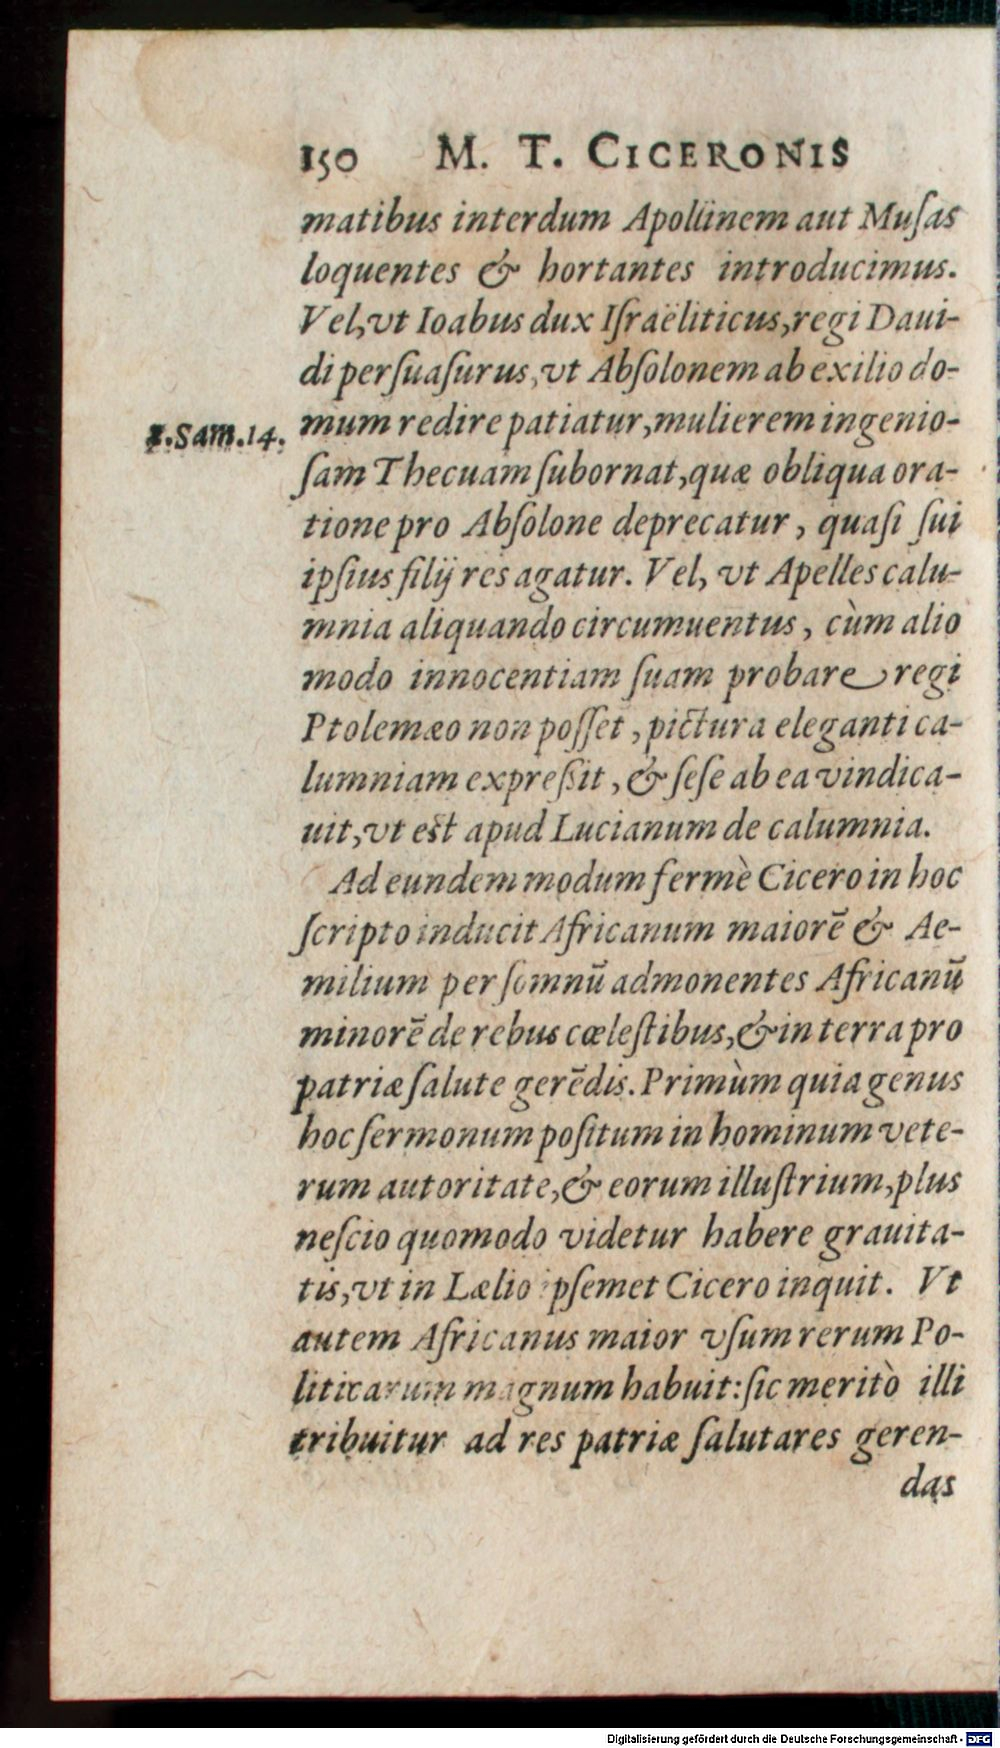 150 M. T. CICERONIS
matibus interdum Apollinem aut Muſas
loquentes & hortantes introducimus.
Vel, vt Ioabus dux Iſraëliticus, regi Daui-
di perſuaſurus, vt Abſolonem ab exilio do-
2.Sam.14.
mum redire patiatur, mulierem ingenio-
ſam Thecuam ſubornat, quæ obliqua ora-
tione pro Abſolone deprecatur, quaſi ſui
ipſius filij res agatur. Vel, vt Apelles calu-
mnia aliquando circumuentus, cùm alio
modo innocentiam ſuam probare regi
Ptolemæo non poſſet, pictura eleganti ca-
lumniam expreßit, & ſeſe ab ea vindica-
uit, vt est apud Lucianum de calumnia.
Ad eundem modum fermè Cicero in hoc
ſcripto inducit Africanum maiorē & Ae-
milium per ſomnū admonentes Africanū
minorē de rebus cœleſtibus, & in terra pro
patriæ ſalute gerēdis. Primùm quia genus
hoc ſermonum poſitum in hominum vete-
rum autoritate, & eorum illuſtrium, plus
neſcio quomodo videtur habere grauita-
tis, vt in Lælio ipſemet Cicero inquit. Vt
autem Africanus maior vſum rerum Po-
liticarum magnum habuit: ſic meritò illi
tribuitur ad res patriæ ſalutares geren-
das
Digitalisierung gefördert durch die Deutsche Forschungsgemeinschaft - DFG